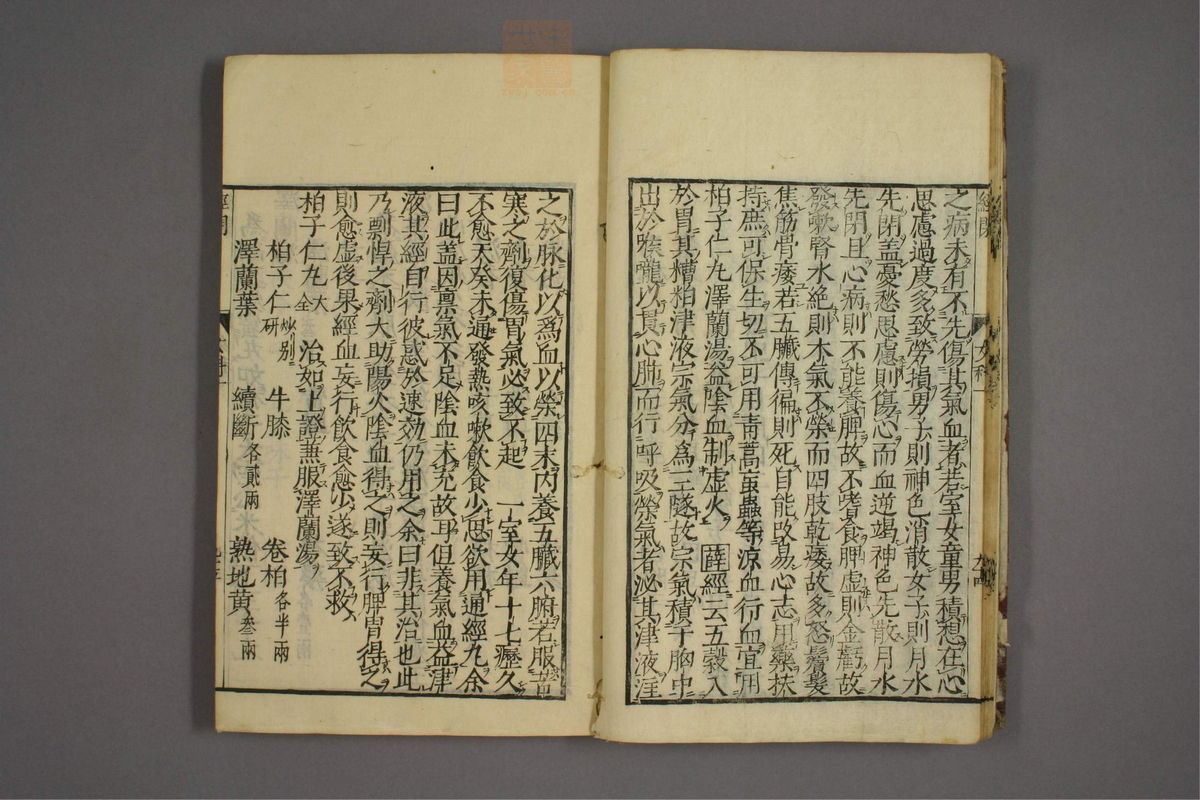 之病未有不先傷其氣血者若室女童男積想在心
思慮過度多致勞損男子則神色消散女子則月水
先閉盖憂愁思慮則傷心而血逆竭神色先散月水
先閉且心病則不能養脾故不嗜食脾虛則金虧故
發嗽腎水絶則木氣不榮而四肢乾痿故多怒鬢髮
焦筋骨痿若五臟傳徧則死自能改易心志用藥扶
持庶可保生切不可用靑蒿䖟蟲等凉血行血宜用
柏子仁丸澤蘭湯益陰血制虛火 薛 經云五穀入
於胃其糟粕津液宗氣分爲三隧故宗氣積于胸中
出於喉嚨以貫心肺而行呼吸榮氣者泌其津液注
之於脉化以爲血以榮四末內養五臟六腑若服苦
寒之劑復傷胃氣必致不起 一室女年十七瘰久
不愈天癸未通發熱咳嗽飲食少思欲用通經丸余
曰此盖因禀氣不足陰血未充故耳但養氣血益津
液其經自行彼惑於速効仍用之余曰非其治也此
乃剽悍之劑大助陽火陰血得之則妄行脾胃得之
則愈虛後果經血妄行飮食愈少遂致不救
柏子仁丸 大全 治如上證兼服澤蘭湯
柏子仁 炒別研 牛膝 卷柏 各半兩
澤蘭葉 續斷 各貳兩 熟地黃 叁兩